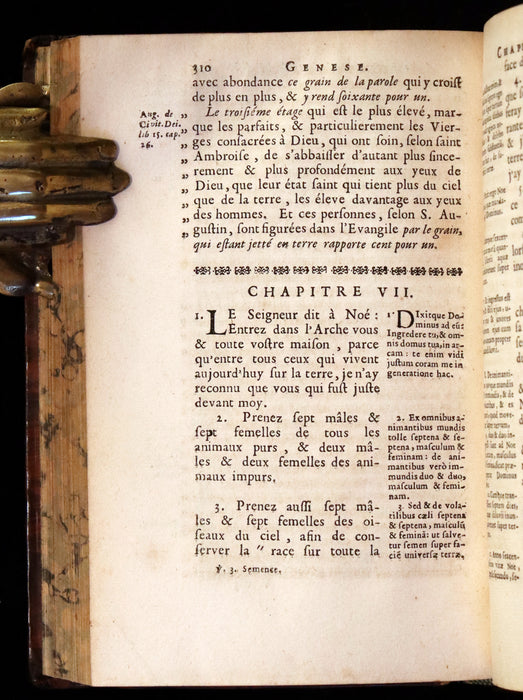 310 GENESE.
avec abondance ce grain de la parole qui y croist
de plus en plus, & y rend soixante pour un.
„ Le troisiéme étage qui est le plus élevé, mar-
„ que les parfaits, & particulierement les Vier-
„ ges consacrées à Dieu, qui ont soin, selon saint
„ Ambroise, de s'abbaisser d'autant plus since-
„ rement & plus profondément aux yeux de
„ Dieu, que leur état saint qui tient plus du ciel
„ que de la terre, les éleve davantage aux yeux
„ des hommes. Et ces personnes, selon S. Au-
„ gustin, sont figurées dans l'Evangile par le grain,
qui estant jetté en terre rapporte cent pour un.
Aug. de
Civit. Dei.
lib 15. cap.
26.
CHAPITRE VII.
1. LE Seigneur dit à Noé:
Entrez dans l'Arche vous
& toute vostre maison, parce
qu'entre tous ceux qui vivent
aujourd'huy sur la terre, je n'ay
reconnu que vous qui fust juste
devant moy.
2. Prenez sept mâles &
sept femelles de tous les
animaux purs, & deux mâ-
les & deux femelles des ani-
maux impurs.
3. Prenez aussi sept mâ-
les & sept femelles des oi-
seaux du ciel, afin de con-
server la " race sur toute la
1. DIxitque Do-
minus ad eũ:
Ingredere tu, & om-
nis domus tua, in ar-
cam: te enim vidi
justum coram me in
generatione hac.
2. Ex omnibus a-
nimantibus mundis
tolle septena & se-
ptena, masculum &
feminam: de ani-
mantibus verò im-
mundis duo & duo,
masculum & femi-
nam.
3. Sed & de vola-
tilibus cæli septena
& septena, masculũ
& feminã: ut salve-
tur semen super fa-
ciẽ universæ terræ.
℣. 3. Semence.
CHAP
face d